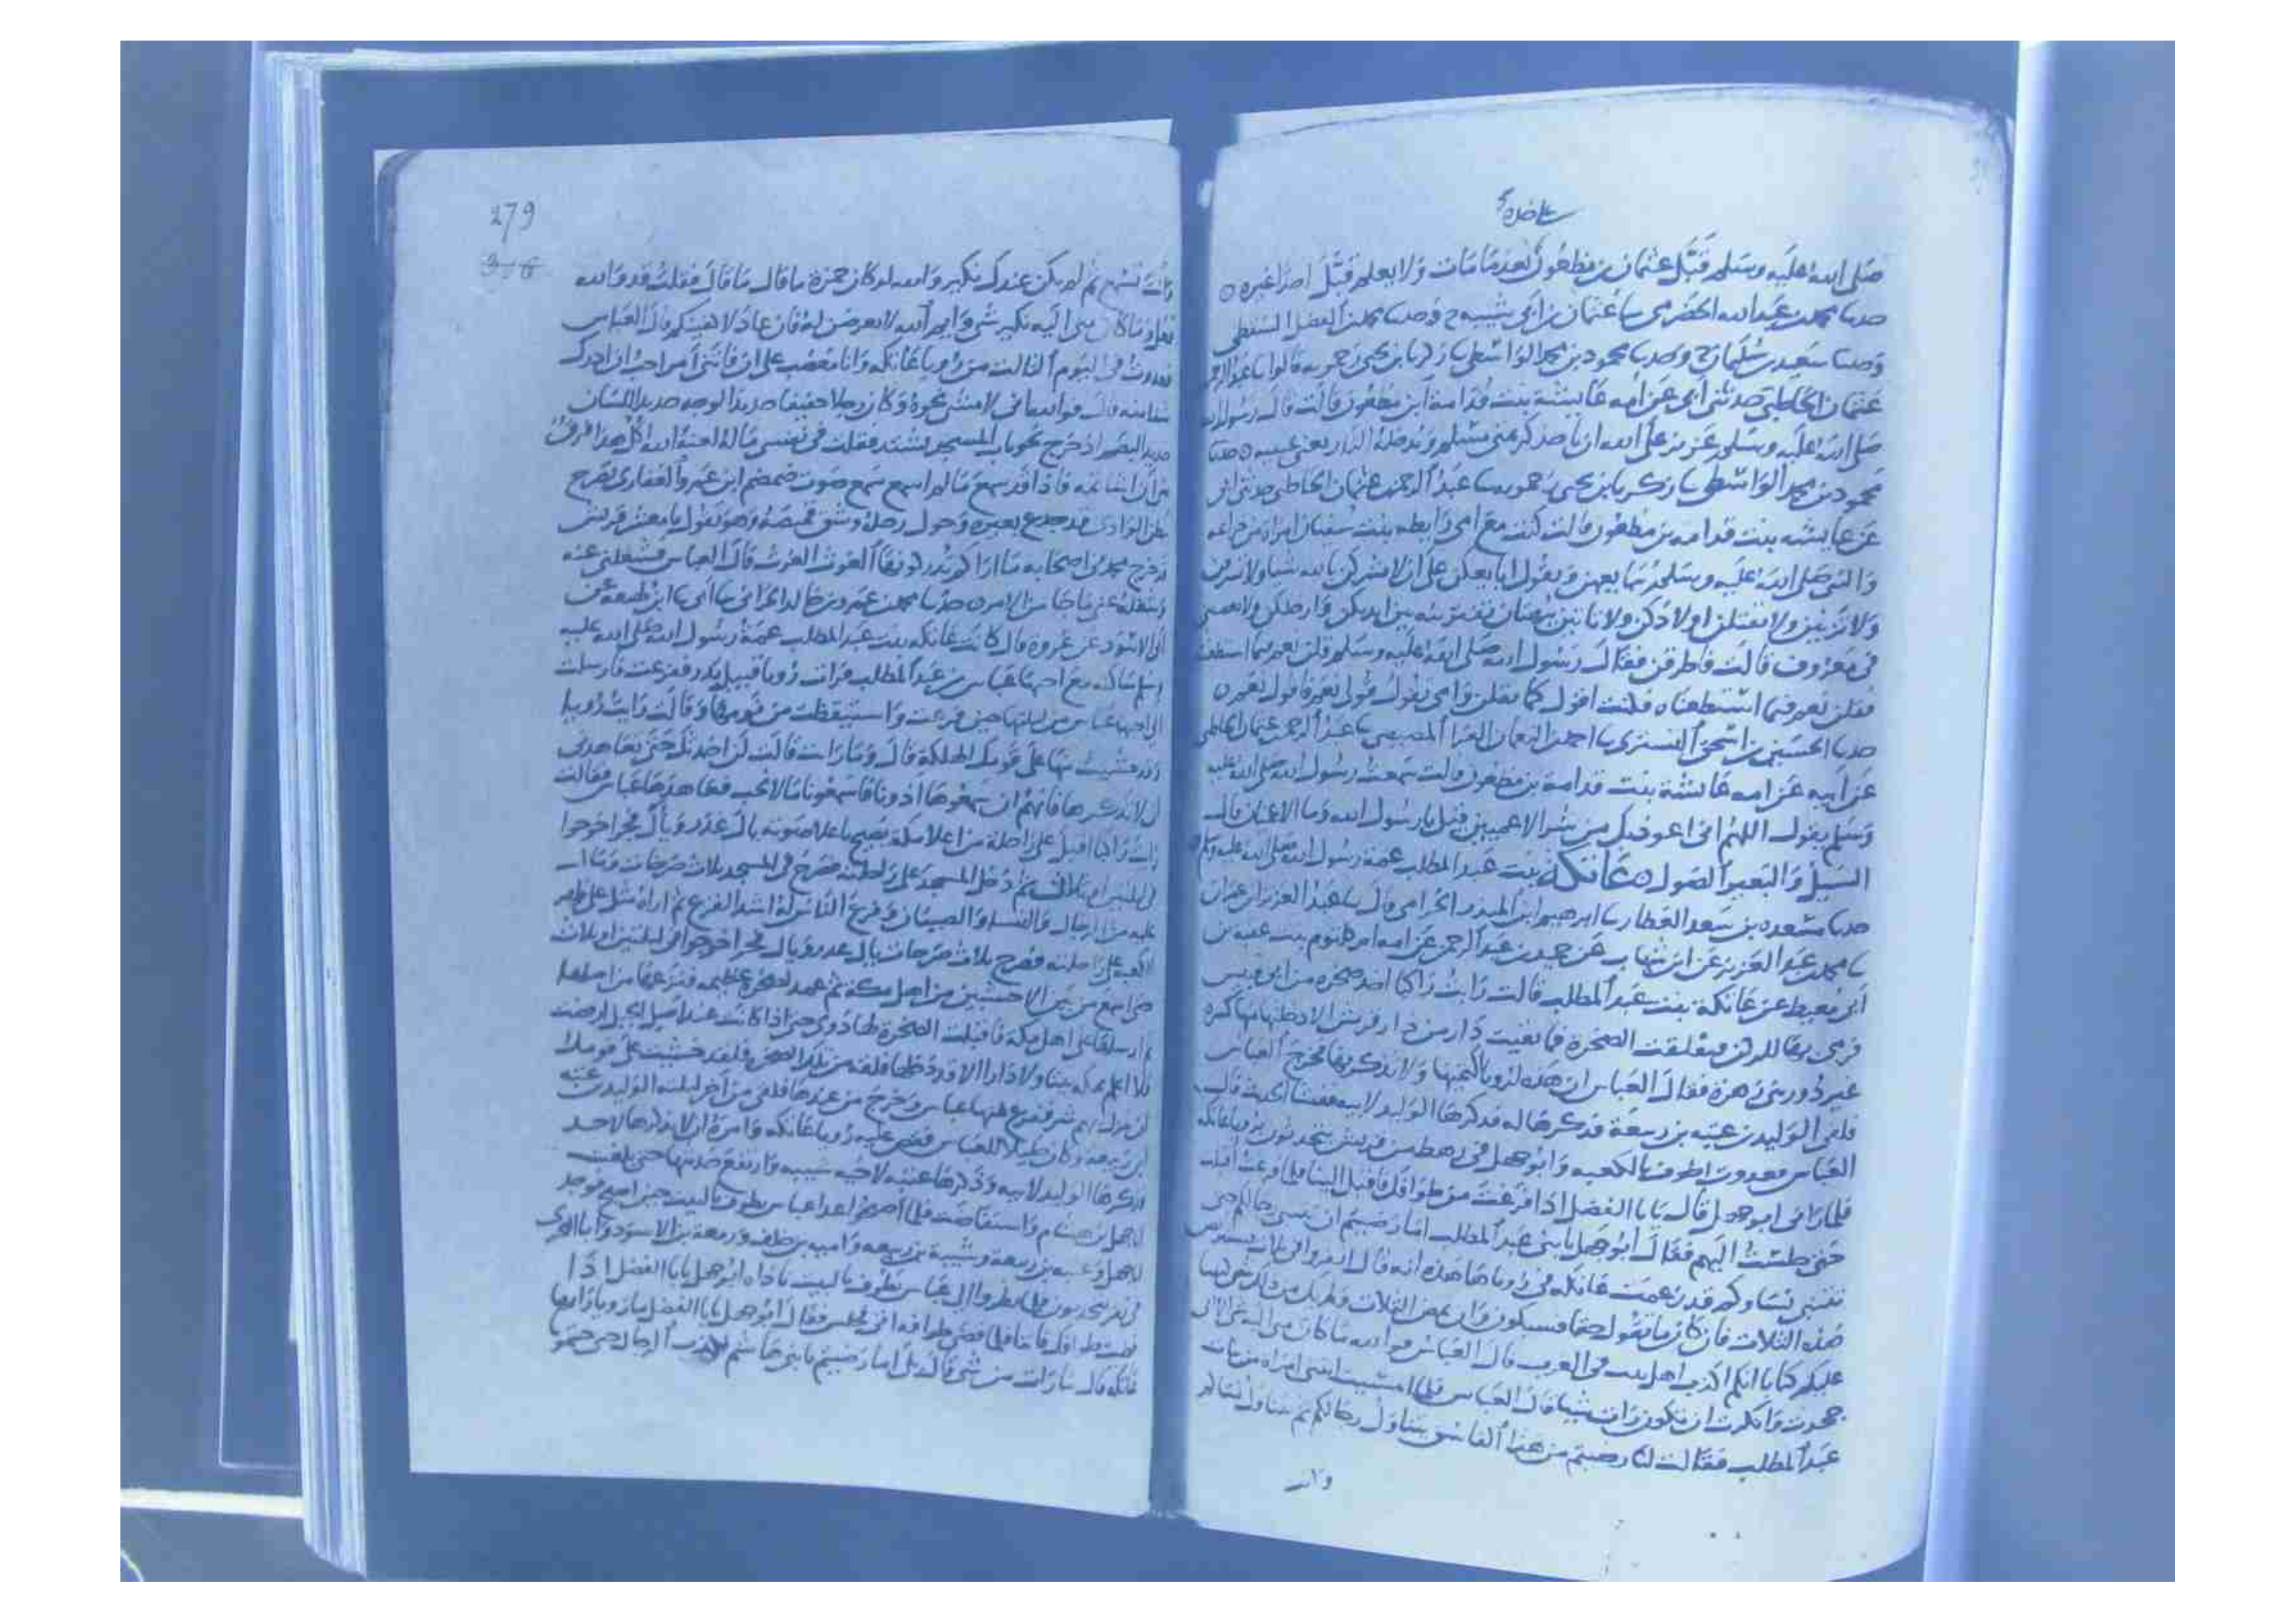 صلى الله عليه وسلم قبل عثمان بن مظعون بعد ما مات ولا يعلم قبل احدا غيره ه
حدثنا محمد بن عبد الله الحضرمي ثنا عثمان بن ابي شيبة ح وحدثنا محمد بن الفضل السقطي
وحدثنا سعيد بن سليمان ح وحدثنا محمود بن محمد الواسطي ثنا زكريا بن يحيى زحمويه قالوا ثنا عبد الرحمن
عثمان الحاطبي حدثني ابي عن امه عائشة بنت قدامة ابن مظعون قالت قال رسول الله
صلى الله عليه وسلم عزيز على الله ان ياخذ كريمتي مسلم ثم يدخله النار يعني عينيه ه حدثنا
محمود بن محمد الواسطي ثنا زكريا بن يحيى زحمويه ثنا عبد الرحمن بن عثمان الحاطبي حدثني ابي
عن عايشه بنت قدامه بن مظعون قالت كنت مع امي رايطه بنت سفيان امراة من خزاعه
والنبي صلى الله عليه وسلم يبايعهن ويقول ابايعكن على ان لا تشركن بالله شيا ولا تسرقن
ولا تزنين ولا تقتلن اولادكن ولا تاتين ببهتان تفترينه بين ايديكن وارجلكن ولا تعصين
في معروف قالت فاطرقن فقال رسول الله صلى الله عليه وسلم قلن نعم فيما استطعتن
فقلن نعم فيما استطعنا ه فكنت اقول كما يقلن وامي تقول قولي نعم فاقول نعم ه
حدثنا الحسين بن اسحق التستري ثنا احمد بن النعمان الفرا المصيصي ثنا عبد الرحمن بن عثمان الحاطبي
عن ابيه عن امه عائشة بنت قدامة بن مظعون قالت سمعت رسول الله صلى الله عليه
وسلم يقول اللهم اني اعوذ بك من شر الاعميين قيل يا رسول الله وما الاعميان قال
السيل والبعير الصول ه عاتكة بنت عبد المطلب عمة رسول الله صلى الله عليه وسلم
حدثنا مسعدة بن سعد العطار ثنا ابرهيم ابن المنذر الحزامي قال ثنا عبد العزيز بن عمران
ثنا محمد بن عبد العزيز عن ابن شهاب عن حميد بن عبد الرحمن عن امه ام كلثوم بنت عقبة بن
ابي معيط عن عاتكة بنت عبد المطلب قالت رايت راكبا اخذ صخره من ابي قبيس
فرمى بها للركن فتعلقت الصخرة فما بقيت دار من دار قريش الا دخلتها منها كسرة
غير دور بني زهرة فقال العباس ان هذه لرويا اكتميها ولا تذكريها فخرج العباس
فلقي الوليد بن عتبه بن ربيعة فذكرها له فذكرها الوليد لابيه ففشا الحديث قال
العباس فغدوت اطوف بالكعبه وابو جهل في رهط من قريش يتحدثون برويا عاتكه
فلما راني ابو جهل قال يا با الفضل اذا فرغت من طوافك فاقبل الينا فلما فرغت اقبلت
حتى جلست اليهم فقال ابو جهل يا بني عبد المطلب اما رضيتم ان يتنبى رجالكم حتى
تتنبى نساوكم قد زعمت عاتكه في روياها هذه انه قال انفروا في ثلاث فسنتربص
هذه الثلاث فان كان ما تقول حقا فسيكون وان تمض الثلاث ولم يك من ذلك شي كتبنا
عليكم كتابا انكم اكذب اهل بيت في العرب قال العباس فوالله ما كان مني اليه غير اني
جحدت وانكرت ان تكون رات شيا قال العباس فلما امسيت اتتني امراة من بنات
عبد المطلب فقالت لي رضيتم من هذا الفاسق يتناول رجالكم ثم يتناول نساكم
وانت
279
وانت تسمع ثم لم يكن عندك نكير والله لو كان حمزة ما قال ما قال فقلت قد والله
فعل وما كان مني اليه نكير شي وايم الله لاتعرضن له فان عاد لاكفينكم قال العباس
فغدوت في اليوم الثالث من رويا عاتكه وانا مغضب على ان فاتني امر احب ان ادرك
شيا منه قال فوالله اني لامشي نحوه وكان رجلا خفيفا حديد الوجه حديد اللسان
حديد البصر اذ خرج نحو باب المسجد يشتد فقلت في نفسي ماله لعنه الله اكل هذا فرقا
من ان اشاتمه فاذا قد سمع ما لم اسمع سمع صوت ضمضم ابن عمرو الغفاري يصرخ
بطن الوادي قد جدع بعيره وحول رحله وشق قميصه وهو يقول يا معشر قريش
قد خرج محمد في اصحابه ما اراكم تدركونها الغوث الغوث قال العباس فشغلني عنه
وشغله عني ما جا من الامر ه حدثنا محمد بن عمرو بن خالد الحراني ثنا ابي ثنا ابن لهيعة عن
ابي الاسود عن عروة قال كانت عاتكه بنت عبد المطلب عمة رسول الله صلى الله عليه
وسلم ساكنه مع اخيها عباس بن عبد المطلب فرات رويا قبيل بدر ففزعت فارسلت
الى اخيها عباس من ليلتها حين فزعت واستيقظت من نومها وقالت رايت رويا
وقد خشيت منها على قومك الهلكة قال وما رات قالت لن احدثك حتى تعاهدني
ان لا تذكرها فانهم ان سمعوها اذونا فاسمعونا ما لا نحب فعاهدها عباس فقالت
رايت راكبا اقبل على راحلة من اعلا مكة يصيح باعلا صوته يال غدر ويال فجر اخرجوا
في ليلتين او ثلاث ثم دخل المسجد على راحلته فصرخ في المسجد ثلاث صرخات ومال
عليه من الرجال والنسا والصبيان وفزع الناس له اشد الفزع ثم اراه مثل على ظهر
الكعبه على راحلته فصرخ ثلاث صرخات يال غدر ويال فجر اخرجوا في ليلتين او ثلاث
حتى اسمع من بين الاخشبين من اهل مكة ثم عمد لصخرة عظيمه فنزعها من اصلها
ثم ارسلها على اهل مكة فاقبلت الصخرة لها دوي حتى اذا كانت عند اصل الجبل ارفضت
فلا اعلم بمكه بيتا ولا دارا الا قد دخلها فلقة من تلك الصخر فلقد خشيت على قومك
ان ينزل بهم شر ففزع منها عباس وخرج من عندها فلقي من اخر ليلته الوليد بن عتبه
ابن ربيعه وكان خليلا للعباس فقص عليه رويا عاتكه وامره ان لا يذكرها لاحد
فذكرها الوليد لابيه وذكرها عتبه لاخيه شيبه وارتفع حديثها حتى بلغت
ابا جهل بن هشام واستفاضت فلما اصبحوا غدا عباس يطوف بالبيت حين اصبح فوجد
ابا جهل وعتبه بن ربيعة وشيبة بن ربيعه واميه بن خلف وزمعة بن الاسود وابا البختري
في نفر يتحدثون فلما نظروا الى عباس يطوف بالبيت ناداه ابو جهل يا با الفضل اذا
قضيت طوافك فاتنا فلما قضى طوافه اتى فجلس فقال ابو جهل يا با الفضل ما رويا راتها
عاتكه قال ما رات من شي قال بلى اما رضيتم يا بني هاشم بكذب الرجال حتى جيتمونا